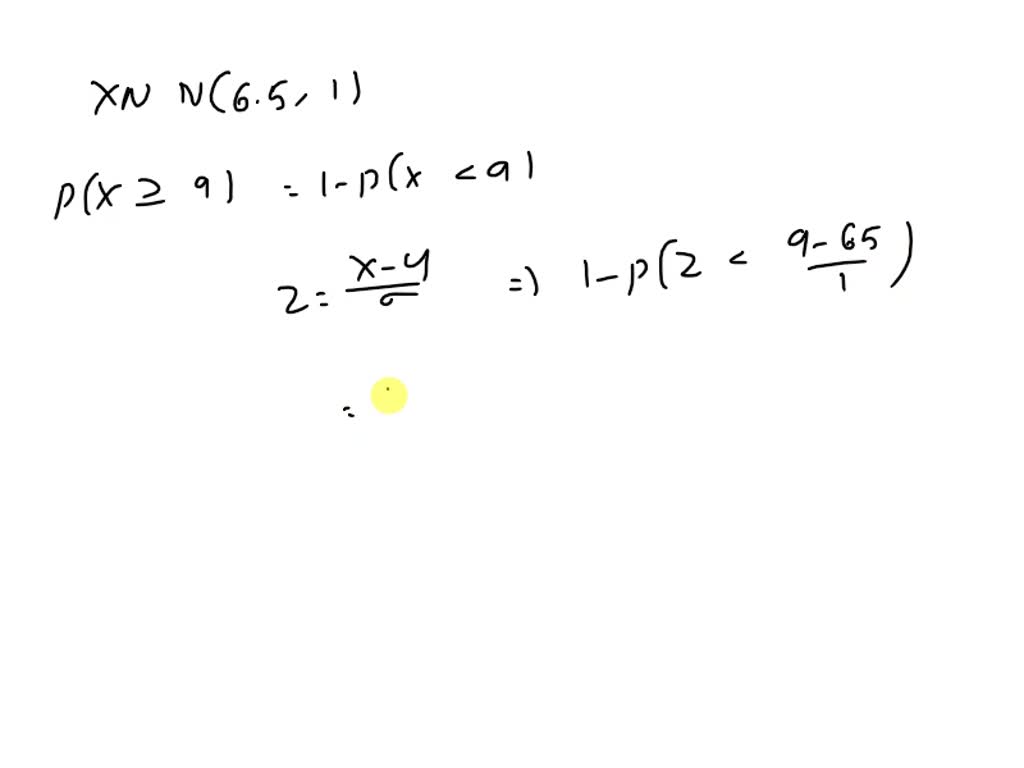 X~ N(6.5, 1)
P(X ≥ 9) = 1-P(x < 9)
z = x-μ/σ => 1-P(z < 9-65/1)
=